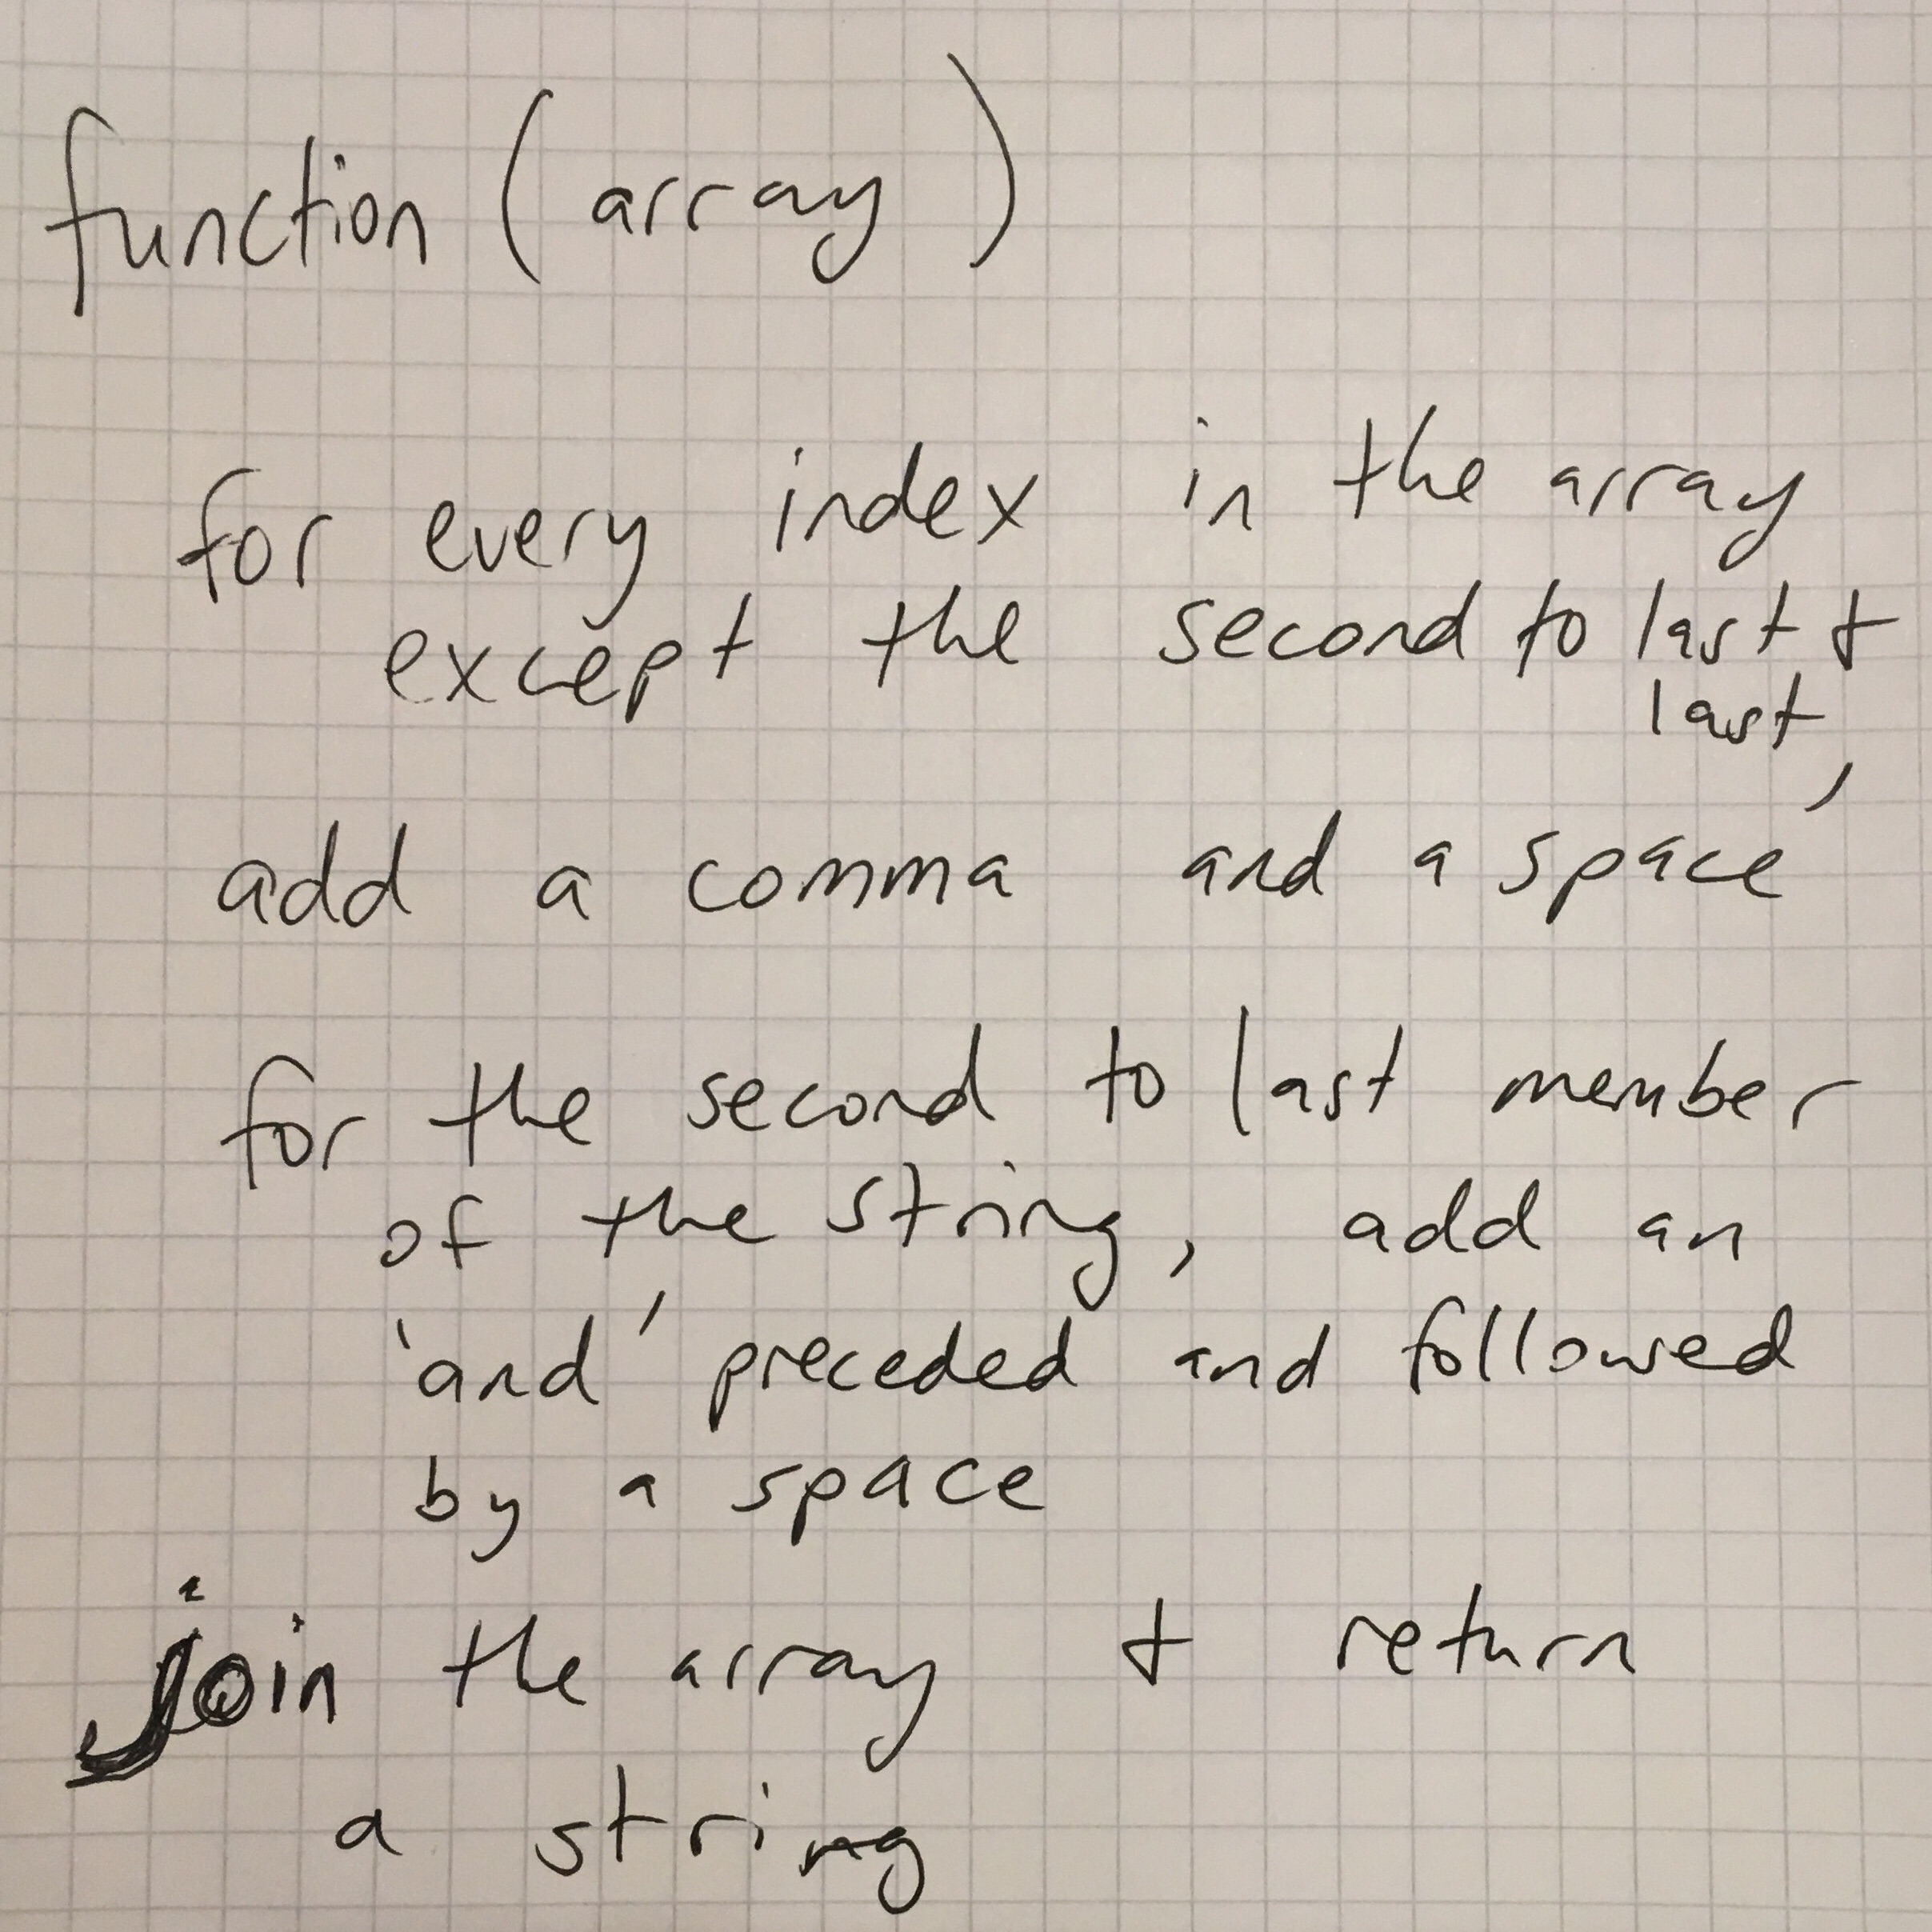 function (array)
for every index in the array
except the second to last +
last,
add a comma and a space
for the second to last member
of the string, add an
'and' preceded and followed
by a space
join the array + return
a string